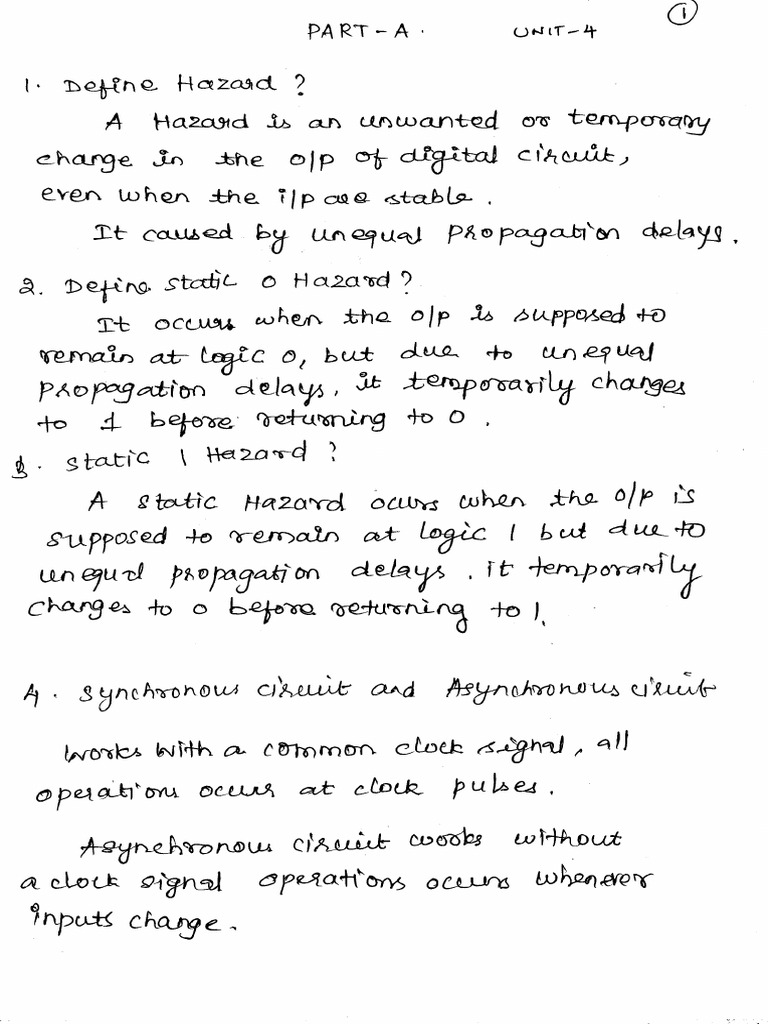 1
PART-A. UNIT-4
1. Define Hazard?
A Hazard is an unwanted or temporary
change in the o/p of digital circuit,
even when the i/p are stable.
It caused by unequal propagation delays.
2. Define static 0 Hazard?
It occurs when the o/p is supposed to
remain at logic 0, but due to unequal
propagation delays, it temporarily changes
to 1 before returning to 0.
3. Static 1 Hazard?
A static Hazard ocurs when the o/p is
supposed to remain at logic 1 but due to
unequal propagation delays, it temporarily
changes to 0 before returning to 1.
4. Synchronous circuit and Asynchronous circuit
Works with a common clock signal, all
operations occurs at clock pulses.
Asynchronous circuit works without
a clock signal operations occurs whenever
inputs change.